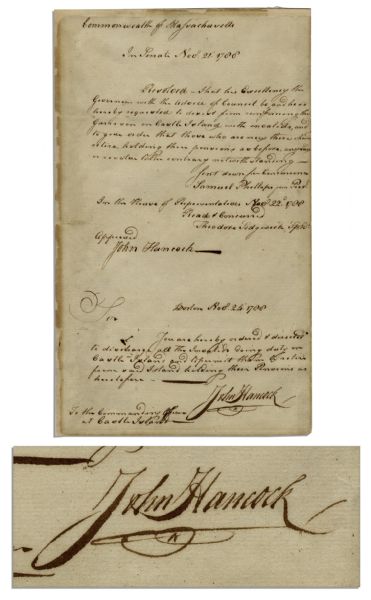 Commonwealth of Massachusetts
In Senate Nov. 21. 1788
Resolved - That his Excellency the
Governor with the advice of Council be, and he is
hereby requested to desist from reinforcing the
Garrison on Castle Island with invalids, and
to give order that those who are now there
retire, holding their pensions as before, any
or resolve to the contrary notwithstanding -
Sent down for Concurrence
Samuel Phillips jun Presdt
In the House of Representatives Nov. 22. 1788
Read & Concurred
Theodore Sedgwick Spkr
Approved
John Hancock
Boston 24 1788
Sir
You are hereby ordered & directed
to discharge all the Invalids doing duty on
Castle Island and to permit them to retire
from said Island holding their Pensions as
heretofore
John Hancock
To the Commanding Officer
at Castle Island
John Hancock